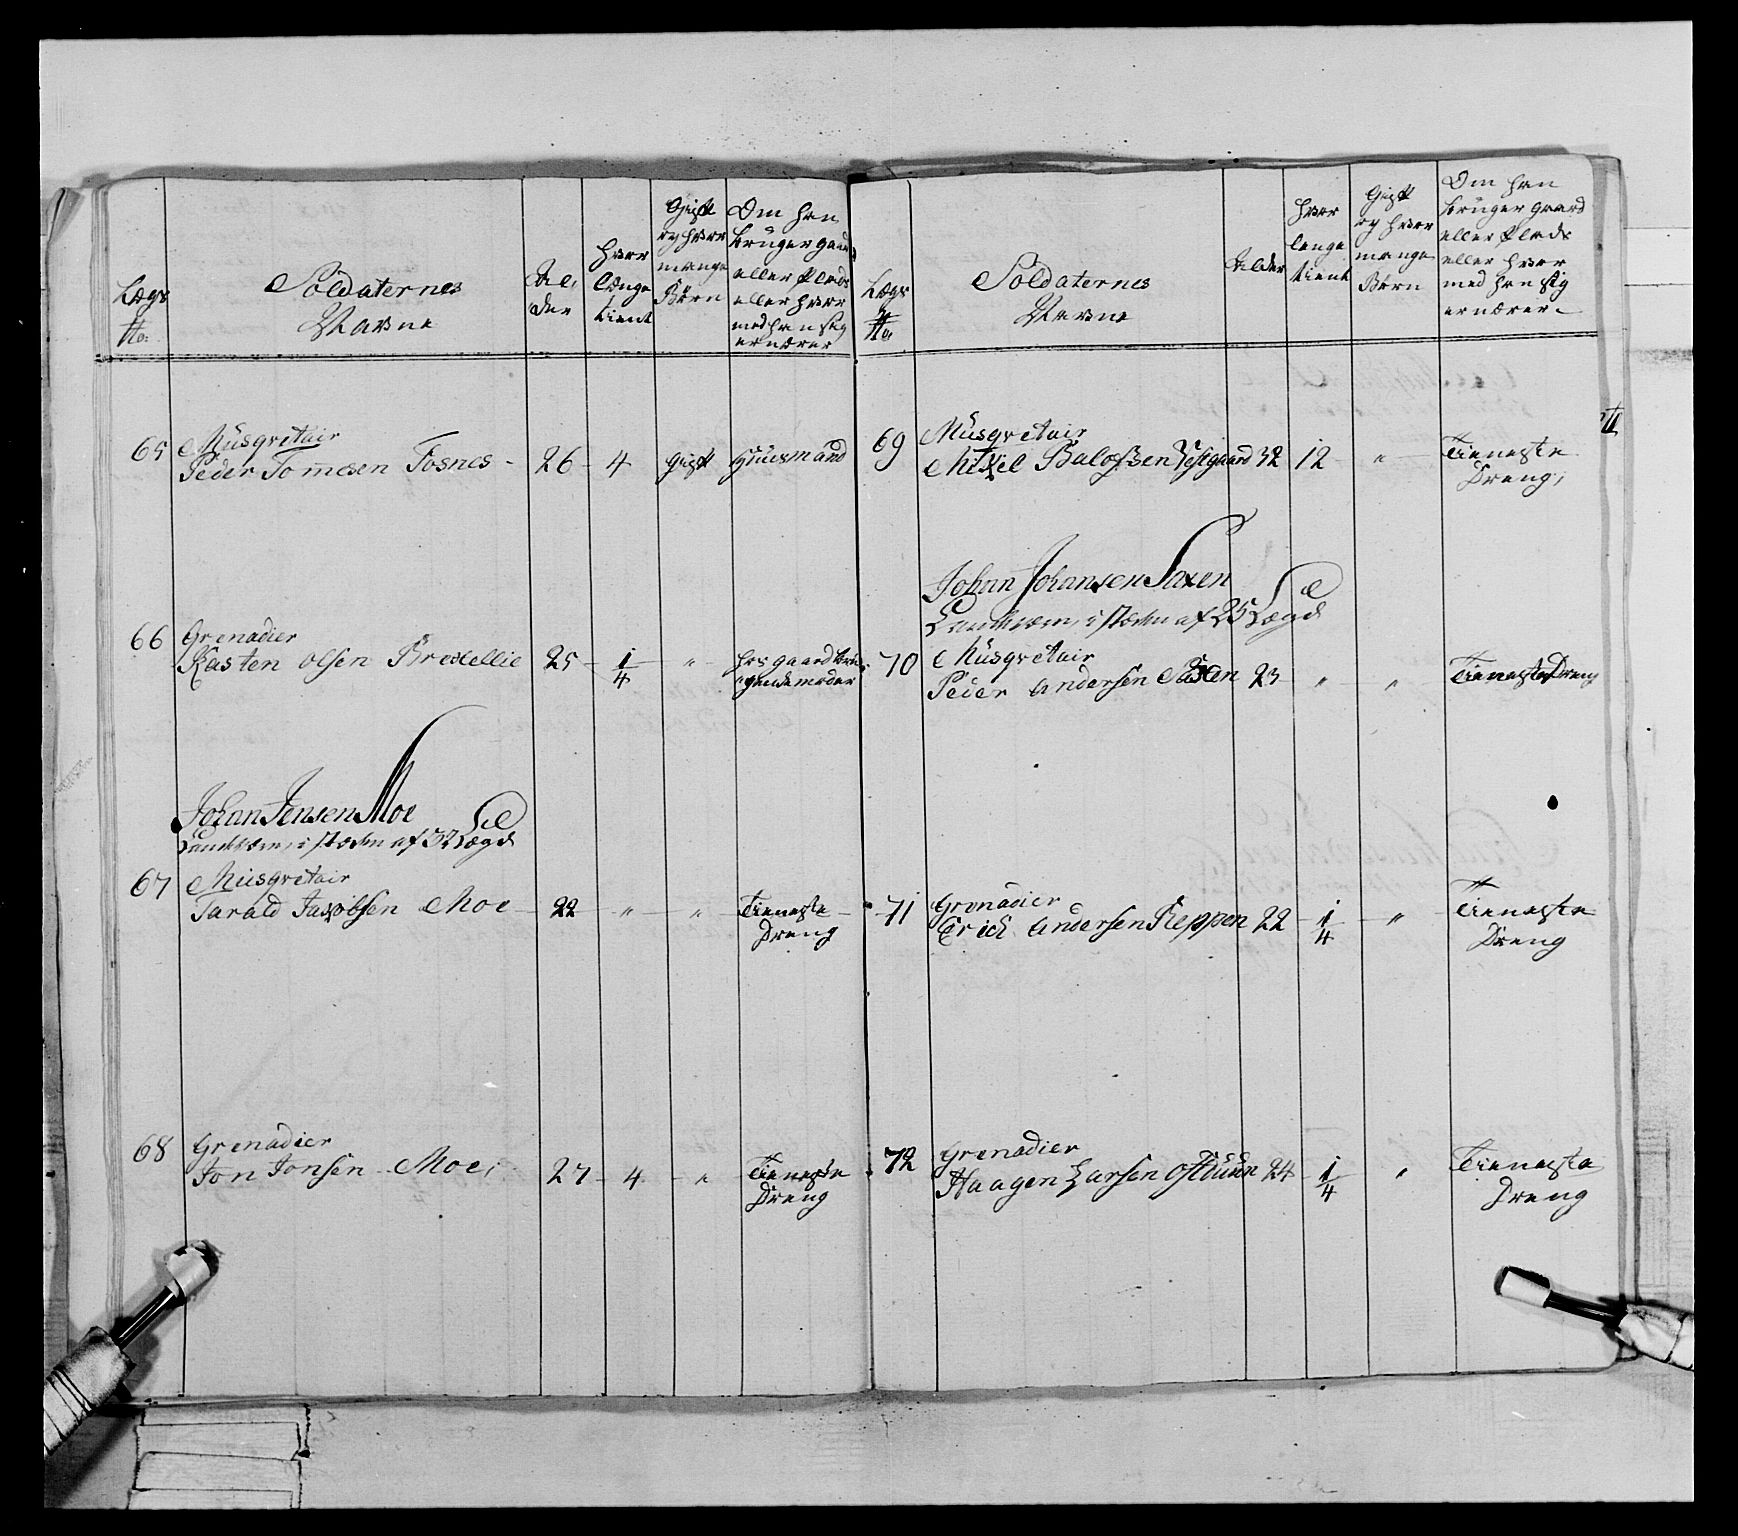 Lægs
No:
Soldaternes
Navne
Al,
der
Hvor
Længe
tient
Gift
og hvor
mange
Børn
Om han
bruger gaard
eller Plads
eller hvor
med han sig
ernærer
65
Musqvetair
Peder Tomesen Fosnes - 26 - 4 Gift Huusmand
66
Grenadier
Kasten Olsen Brexellie 25 - 1/4 - " -
hos gaard bru
gende moder
Johan Jensen Moe
Landværn, i stæden af 32 Lægd
67
Musqvetair
Tarald Jacobsen Moe 22 - " - " -
Tieneste
Dreng
68
Grenadier
Jon Jonsen Moe, 27 - 4 - "
Tieneste
Dreng
Lægs
No
Soldaternes
Navne
Alder
Hvor
længe
tient
Gift
og hvor
mange
Børn
Om han
bruger gaard
eller Plads
eller hvor
med han sig
ernærer
69
Musqvetair
Mikkel Baltzersen Vestgaard 32 12 - " -
Tieneste
Dreng,
Johan Johansen Saxen
Landværn, i stæden af 25 Lægd
70
Musqvetair
Peder Andersen Saxen 23 - " - " - Tieneste Dreng
71
Grenadier
Erich Andersen Reppen 22 - 1/4 - "
Tieneste
Dreng
72
Grenadier
Haagen Larsen Ostduun 24 - 1/4 "
Tieneste
Dreng